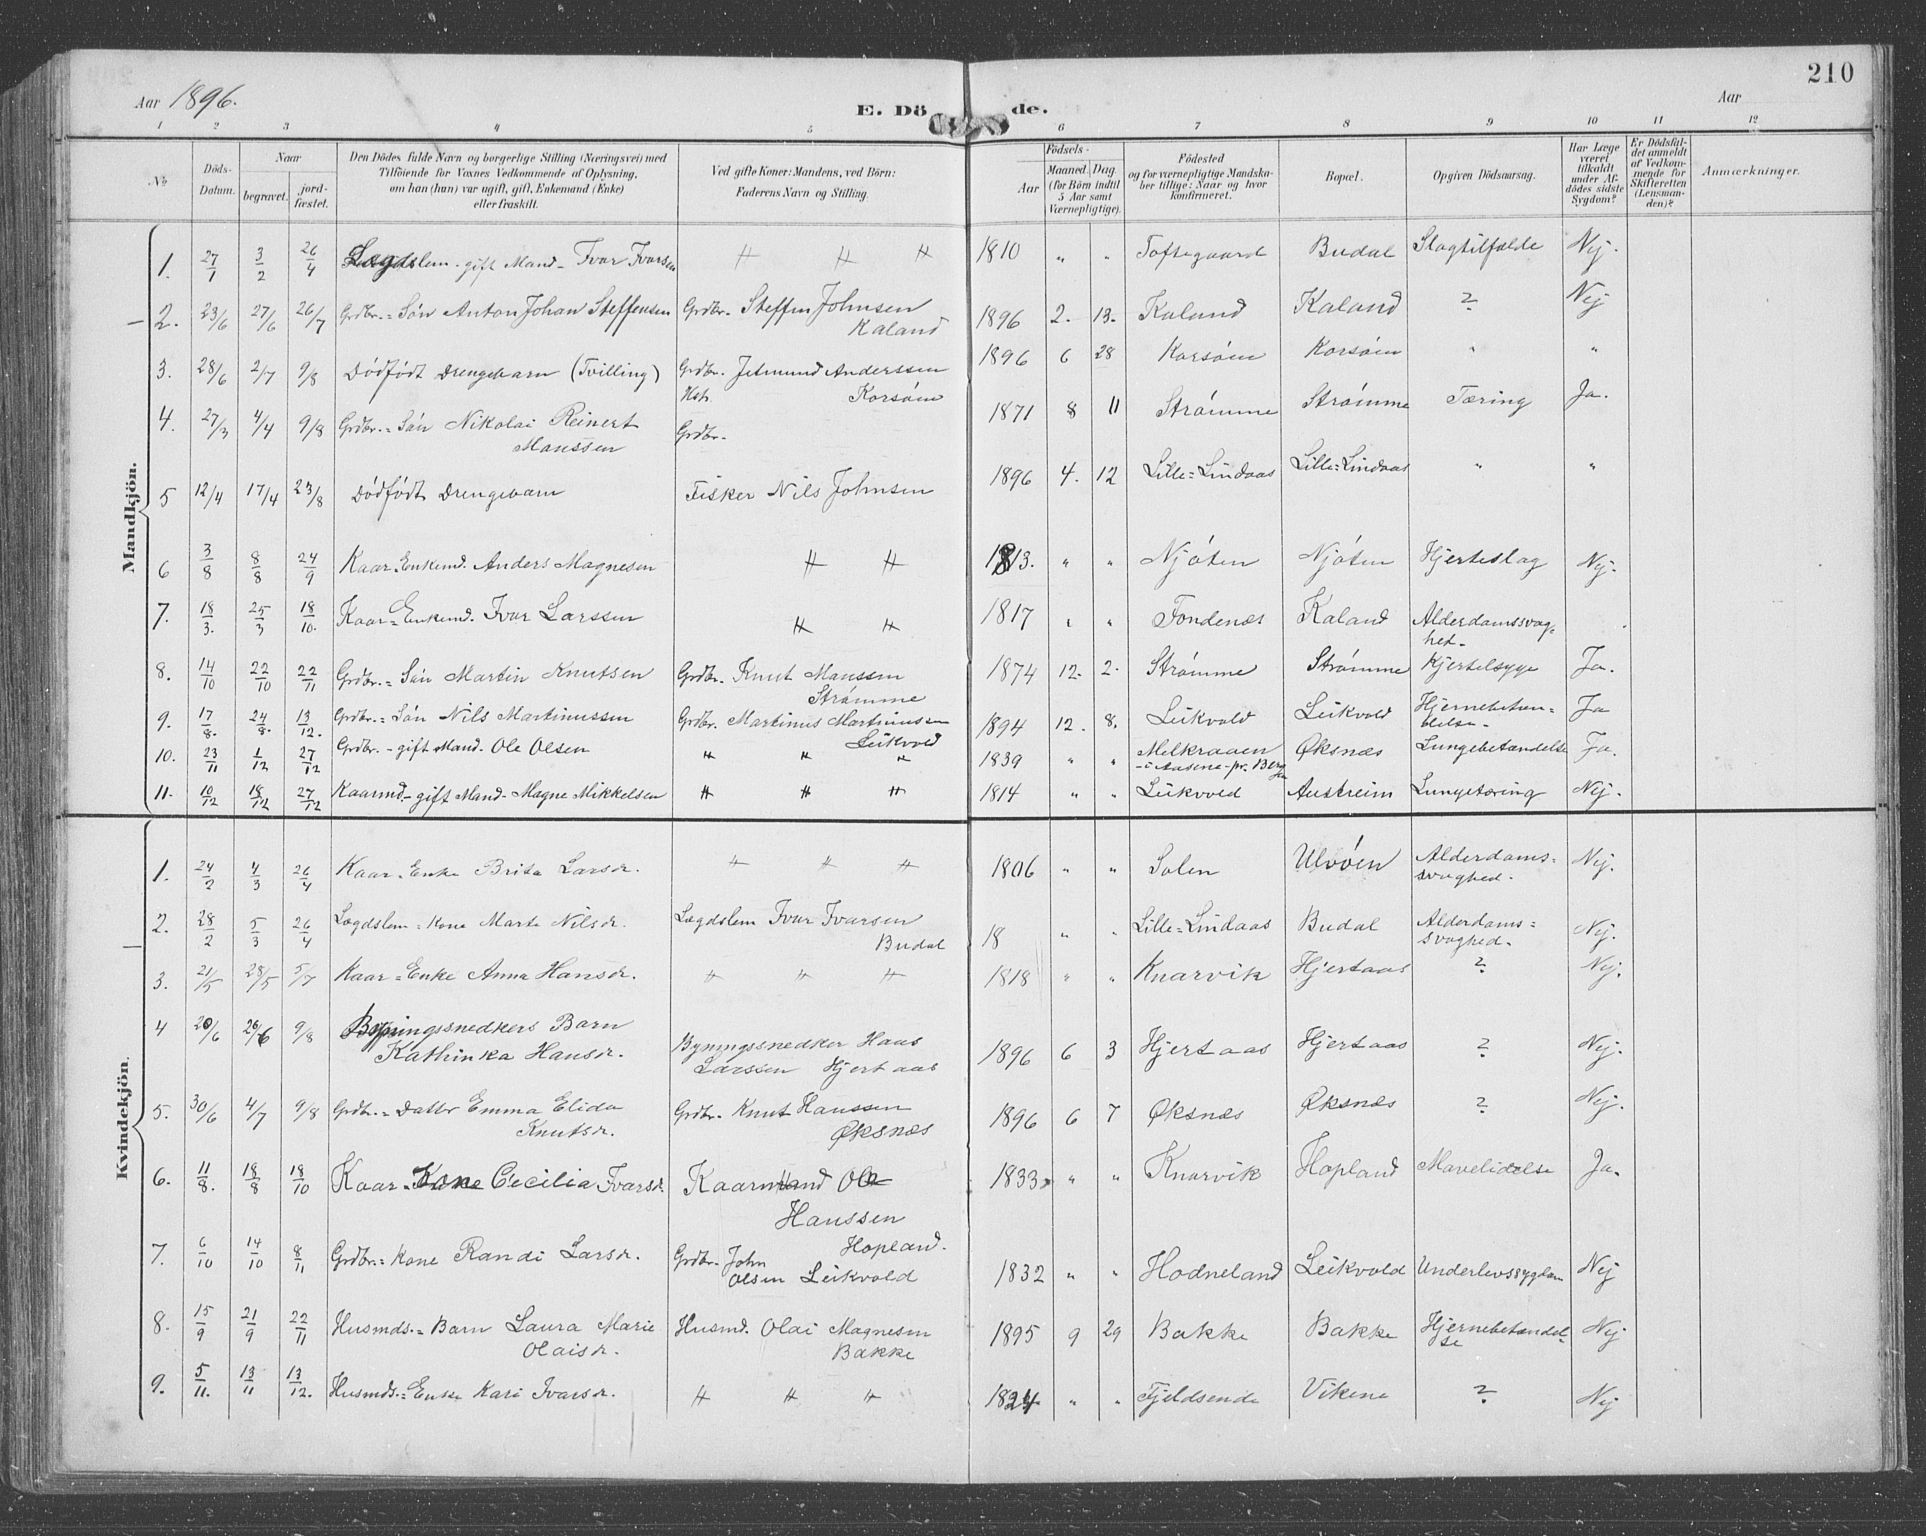 Aar 1896.
E. Döde.
Aar
210
1 2 3 4 5 6 7 8 9 10 11 12
No.
Döds-Datum.
Naar
begravet.
jordfæstet.
Den Dödes fulde Navn og borgerlige Stilling (Næringsvei) med
Tilföiende for Voxnes Vedkommende af Oplysning,
om han (hun) var ugift, gift, Enkemand (Enke)
eller fraskilt.
Ved gifte Koner: Mandens, ved Börn:
Faderens Navn og Stilling.
Födsels-
Aar
Maaned. Dag.
(for Börn indtil
5 Aar samt
Værnepligtige).
Födested
og for værnepligtige Mandskaber tillige: Naar og hvor
konfirmeret.
Bopæl.
Opgiven Dödsaarsag.
Har Læge
været
tilkaldt
under Afdödes sidste
Sygdom?
Er Dödsfaldet anmeldt
af Vedkommende for
Skifteretten
(Lensmanden)?
Anmærkninger.
Mandkjön.
1. 27/1 3/2 26/4 Lægdslem - gift Mand - Ivar Ivarsen " " " 1810 " " Toftegaard Budal Slagtilfælde Nej.
2. 23/6 27/6 26/7 Grdbr. = Søn Anton Johan Steffensen Grdbr. Steffen Johnsen Kaland 1896 2. 13. Kaland Kaland ? Nej
3. 28/6 2/7 9/8 Dødfødt Drengebarn (Tvilling) Grdbr. Jetmund Anderssen Korsøen 1896 6 28 Korsøen Korsøen " "
4. 27/3 4/4 9/8 Grdbr. = Søn Nikolai Reinert Manssen Grdbr. 1871 8 11 Strømme Strømme Tæring Ja.
5 12/4 17/4 23/8 Dødfødt Drengebarn Fisker Nils Johnsen 1896 4. 12 Lille=Lindaas Lille=Lindaas " "
6 3/8 8/8 24/9 Kaar-Enkemd. Anders Magnesen " " 1813. " " Njøten Njøten Hjerteslag Nej.
7. 18/3. 25/3 18/10. Kaar=Enkemd. Ivar Larssen " " 1817 " " Fondenæs Kaland Alderdomssvaghet.
8. 14/10 22/10 22/11 Grdbr. = Søn Martin Knutsen Grdbr. Knut Manssen Strømme 1874 12. 2. Strømme Strømme Kjertelsyge Ja.
9. 17/8. 24/8. 13/12. Grdbr. = Søn Nils Martinussen Grdbr. Martinus Martinussen Leikvold 1894 12. 8. Leikvold Leikvold Hjernebetændelse. Ja
10. 23/11 1/12 27/12 Grdbr. - gift Mand. Ole Olsen " " " 1839 " " Melkraaen - i Aasene - pr. Bergen Øksnæs Lungebetændelse Ja.
11. 10/12 18/12 27/12 Kaarmd. - gift Mand - Magne Mikkelsen " " " 1814 " " Leikvold Austreim Lungetæring Nej.
Kvindekjön
1. 24/2 4/3 26/4 Kaar - Enke Brita Larsdr. " " " 1806 " " Solen Ulvøen Alderdoms=svaghed. Nej.
2. 28/2 5/3 26/4 Lægdslem = Kone Marta Nilsdr. Lægdslem Ivar Ivarsen Budal 18 " " Lille=Lindaas Budal Alderdoms=svaghed. Nej.
3. 21/5 28/5 5/7 Kaar = Enke Anna Hansdr. " " " 1818 " " Knarvik Hjertaas ? Nej.
4 20/6 26/6 9/8 Bygningssnedkers Barn Kathinka Hansdr. Bygningssnedker Hans Larssen Hjertaas 1896 6 3 Hjertaas Hjertaas ? Nej.
5. 30/6 4/7 9/8 Grdbr. = Datter Emma Elida Knutsdr. Grdbr. Knut Hanssen Øksnæs 1896 6 7 Øksnæs Øksnæs ? Nej.
6. 11/8. 18/8 18/10 Kaar - Kone Cecilia Ivarsdr. Kaarmand Ole Hanssen Hopland. 1833 " " Knarvik Hopland Mavelidelse Ja.
7. 6/10 14/10 8/11 Grdbr. = Kone Randi Larsdr. Grdbr. John Olsen Leikvold 1832 " " Hodneland Leikvold Underlivssygdom Nej
8. 15/9 21/9 22/11 Husmds. = Barn Laura Marie Olaisdr. Husmd. Olai Magnesen Bakke 1895 9 29 Bakke Bakke Hjernebetændelse Nej
9. 5/11. 13/11 13/12. Husmds. = Enke Kari Ivarsdr. " " " 1824 " " Fjeldsende Vikene ? Nej